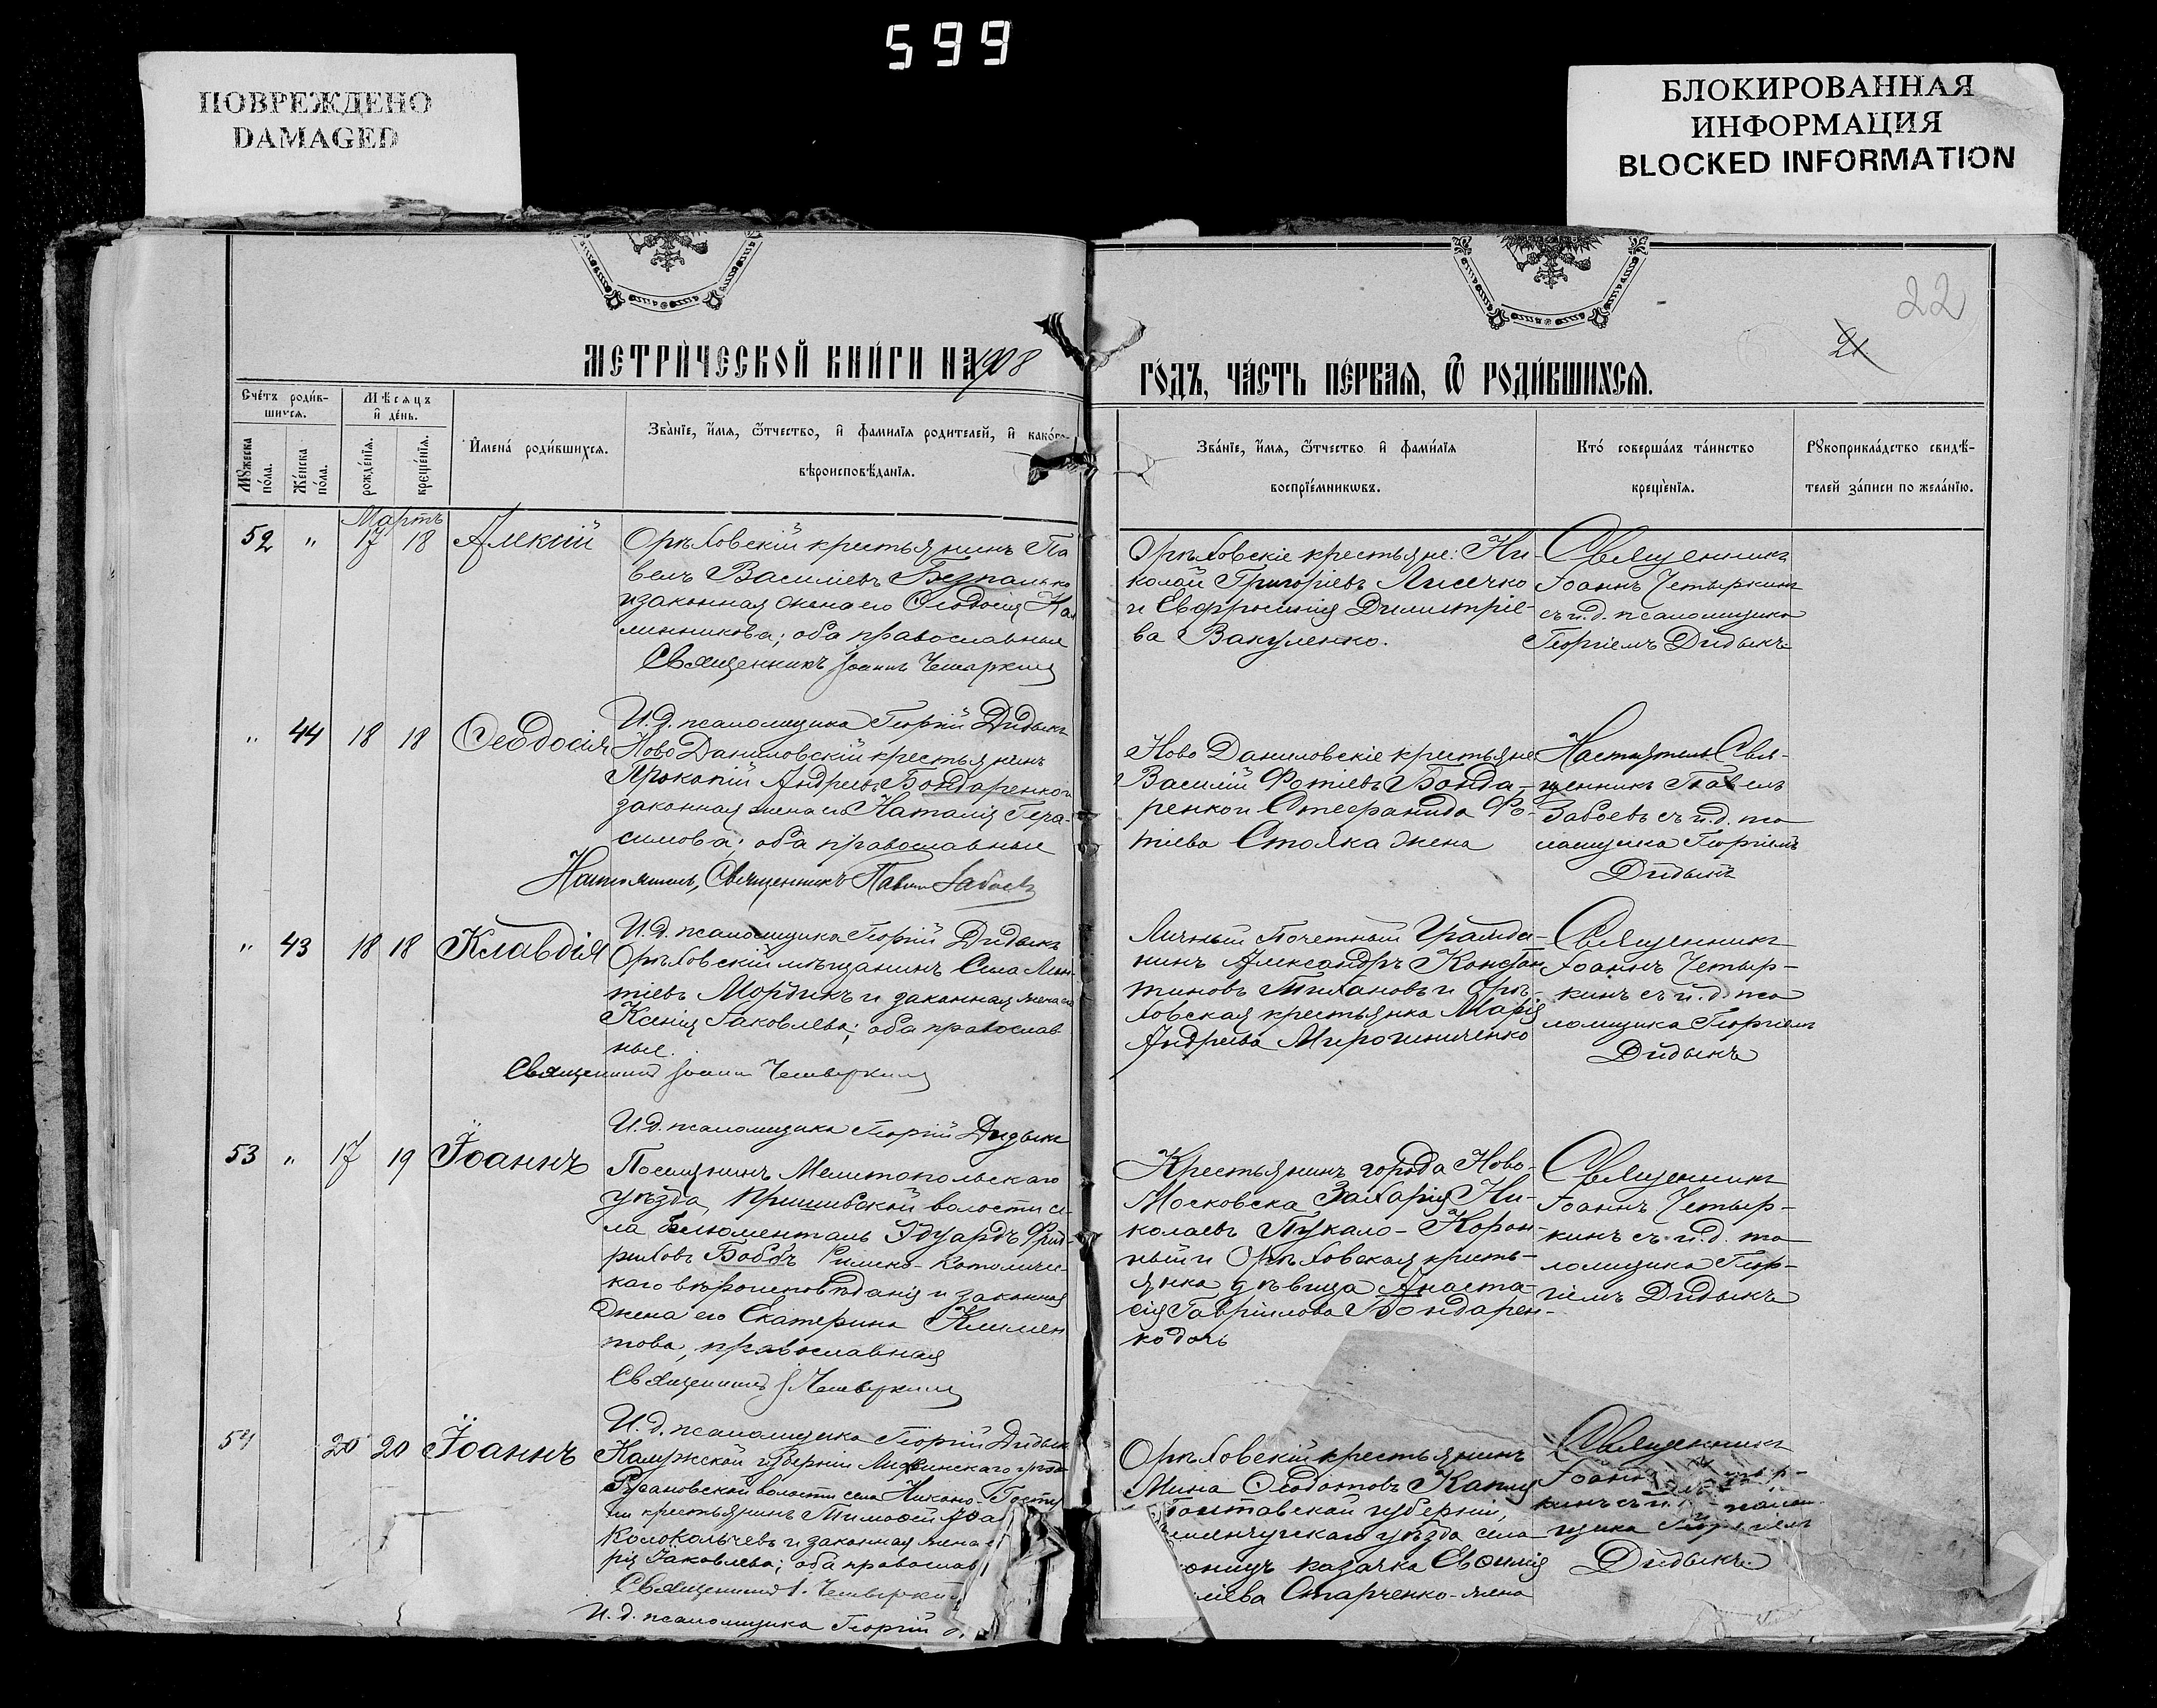 599
ПОВРЕЖДЕНО
DAMAGED
БЛОКИРОВАННАЯ
ИНФОРМАЦИЯ
BLOCKED INFORMATION
22
21.
МЕТРИ́ЧЕСКОЙ КНИ́ГИ НА 1908
ГО́ДЪ, ЧА́СТЬ ПЕ́РВАЯ, Ѿ РОДИ́ВШИХСЯ.
Сче́тъ роди́в-
шихся.
Мѣсяцъ
и де́нь.
Мꙋжеска
по́ла.
Же́нска
по́ла.
рожде́нїѧ.
креще́нїѧ.
Имена́ роди́вшихсѧ.
Зва́нїе, и́мѧ, ѻ́тчество, и фами́лїѧ роди́телей, и како́гѡ
вѣроисповѣ́данїѧ.
Зва́нїе, и́мѧ, ѻ́тчество и фами́лїѧ
воспрїе́мникѡвъ.
Кто́ соверша́лъ та́инство
креще́нїѧ.
Рꙋкоприкла́дство свидѣ́-
телей за́писи по жела́нїю.
Мартъ
52 " 17 18 Алексій
Орѣховскій крестьянинъ Па
велъ Василіевъ Безпалько
и законная жена его Ѳеодосія Ка
линникова; оба православные
Священникъ Іоаннъ Четыркинъ
И. д. псаломщика Георгій Дидыкъ
Орѣховскіе крестьяне: Ни-
колай Григоріевъ Лисечко
и Евфросинія Димитріе-
ва Вакуленко.
Священникъ
Іоаннъ Четыркинъ
съ и. д. псаломщика
Георгіемъ Дидыкъ
" 44 18 18 Ѳеодосія
Ново Даниловскій крестьянинъ
Прокопій Андреевъ Бондаренко и
законная жена его Наталія Гера-
симова; оба православные
Настоятель, Священникъ Павелъ Забоевъ
И. д. псаломщика Георгій Дидыкъ
Ново Даниловскіе крестьяне
Василій Фотіевъ Бонда-
ренко и Стефанида Фо-
тіева Столка жена
Настоятель Свя-
щенникъ Павелъ
Забоевъ съ и. д. пса
ломщика Георгіемъ
Дидыкъ
" 43 18 18 Клавдія
Орѣховскій мѣщанинъ Сила
тіевъ Мордикъ и законная жена его
Ксенія Іаковлева; оба православ
ные.
Священникъ Іоаннъ Четыркинъ
И. д. псаломщика Георгій Дидыкъ
Личный Почетный Гражда-
нинъ Александръ Констан
тиновъ Тихановъ и Орѣ-
ховская крестьянка Марія
Андреева Мирошниченко
Священникъ
Іоаннъ Четыр-
кинъ съ и. д. пса
ломщика Георгіемъ
Дидыкъ
53 " 17 19 Іоаннъ
Поселянинъ Мелитопольскаго
уѣзда, Пришибской волости се
ла Блюменталь Эдуардъ Фрид-
риховъ Бобъ Римско-Католичес
каго вѣроисповѣданія и законная
жена его Екатерина Климен
това, православная
Священникъ І. Четыркинъ
И. д. псаломщика Георгій Дидыкъ
Крестьянинъ города Ново-
Московска Захарія Ни-
колаевъ Пукало-Корон-
ный и Орѣховская кресть-
янка дѣвица Анаста-
сія Гавріилова Бондарен-
ко дочь
Священникъ
Іоаннъ Четыр-
кинъ съ и. д. пса
ломщика Геор-
гіемъ Дидыкъ
54 20 20 Іоаннъ
Калужской губерніи Медынскаго уѣзда
волости села
крестьянинъ Тимоѳей
Колокольчевъ и законная жена
рія Іаковлева; оба православ
Священникъ І. Четыркинъ
И. д. псаломщика Георгій
Орѣховскій крестьянинъ
Мина Ѳеодотовъ Капля
Полтавской губерніи,
менчугскаго уѣзда села
казачка Евѳимія
ліева Старченко-жена
Священникъ
Іоаннъ
кинъ съ и.
щика Георгіемъ
Дидыкъ